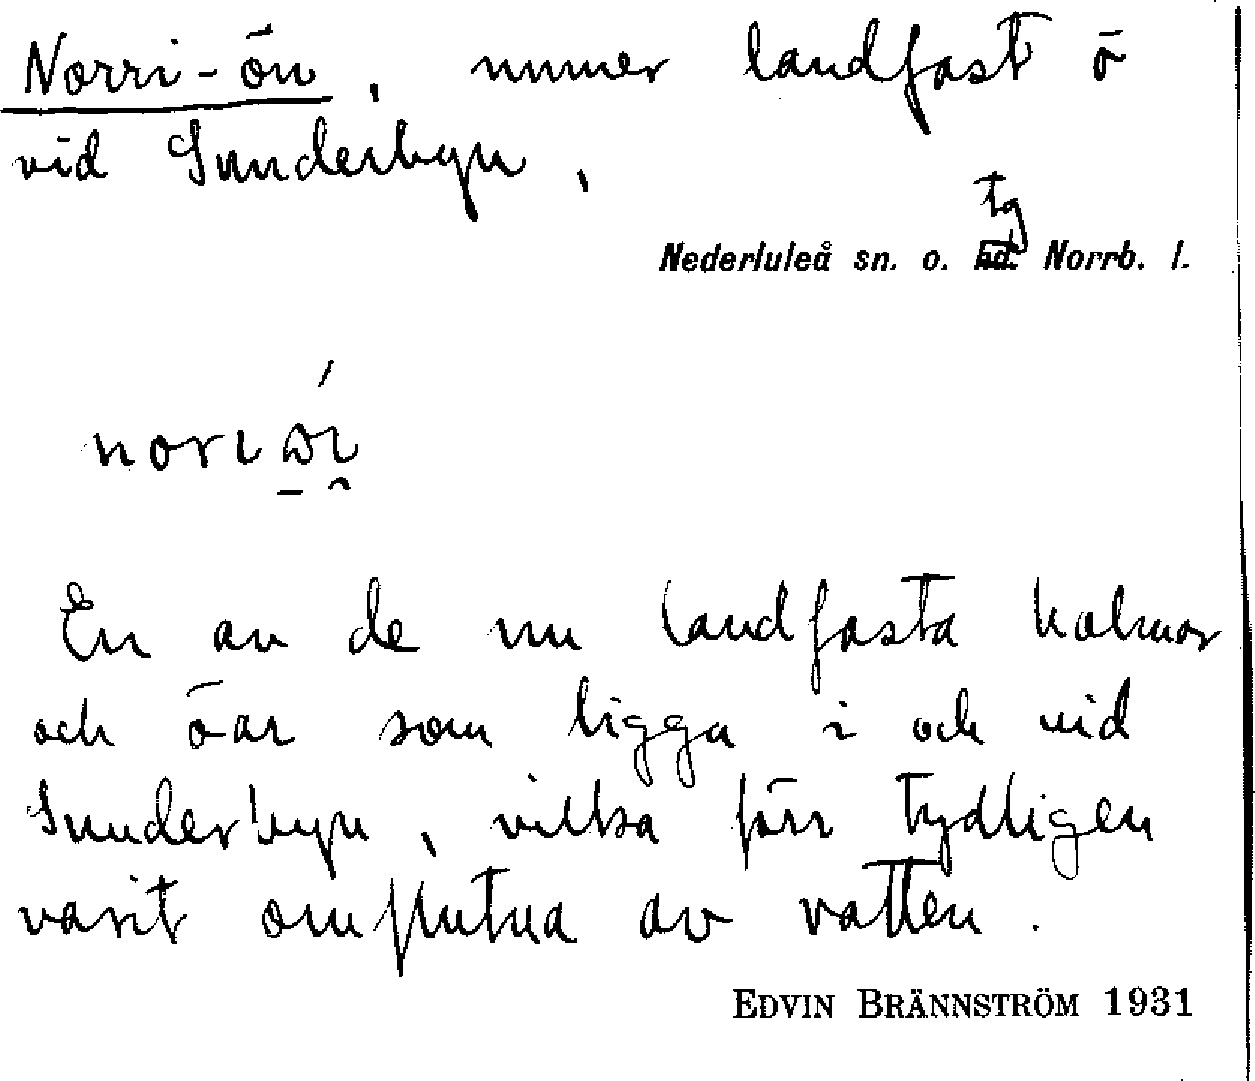 Norri-ön, numer landfast ö
vid Sunderbyn,
tg
Nederluleå sn. o. hd. Norrb. l.
En av de nu landfasta holmar
och öar som ligga i och vid
Sunderbyn, vilka förr tydligen
varit omflutna av vatten.
EDVIN BRÄNNSTRÖM 1931